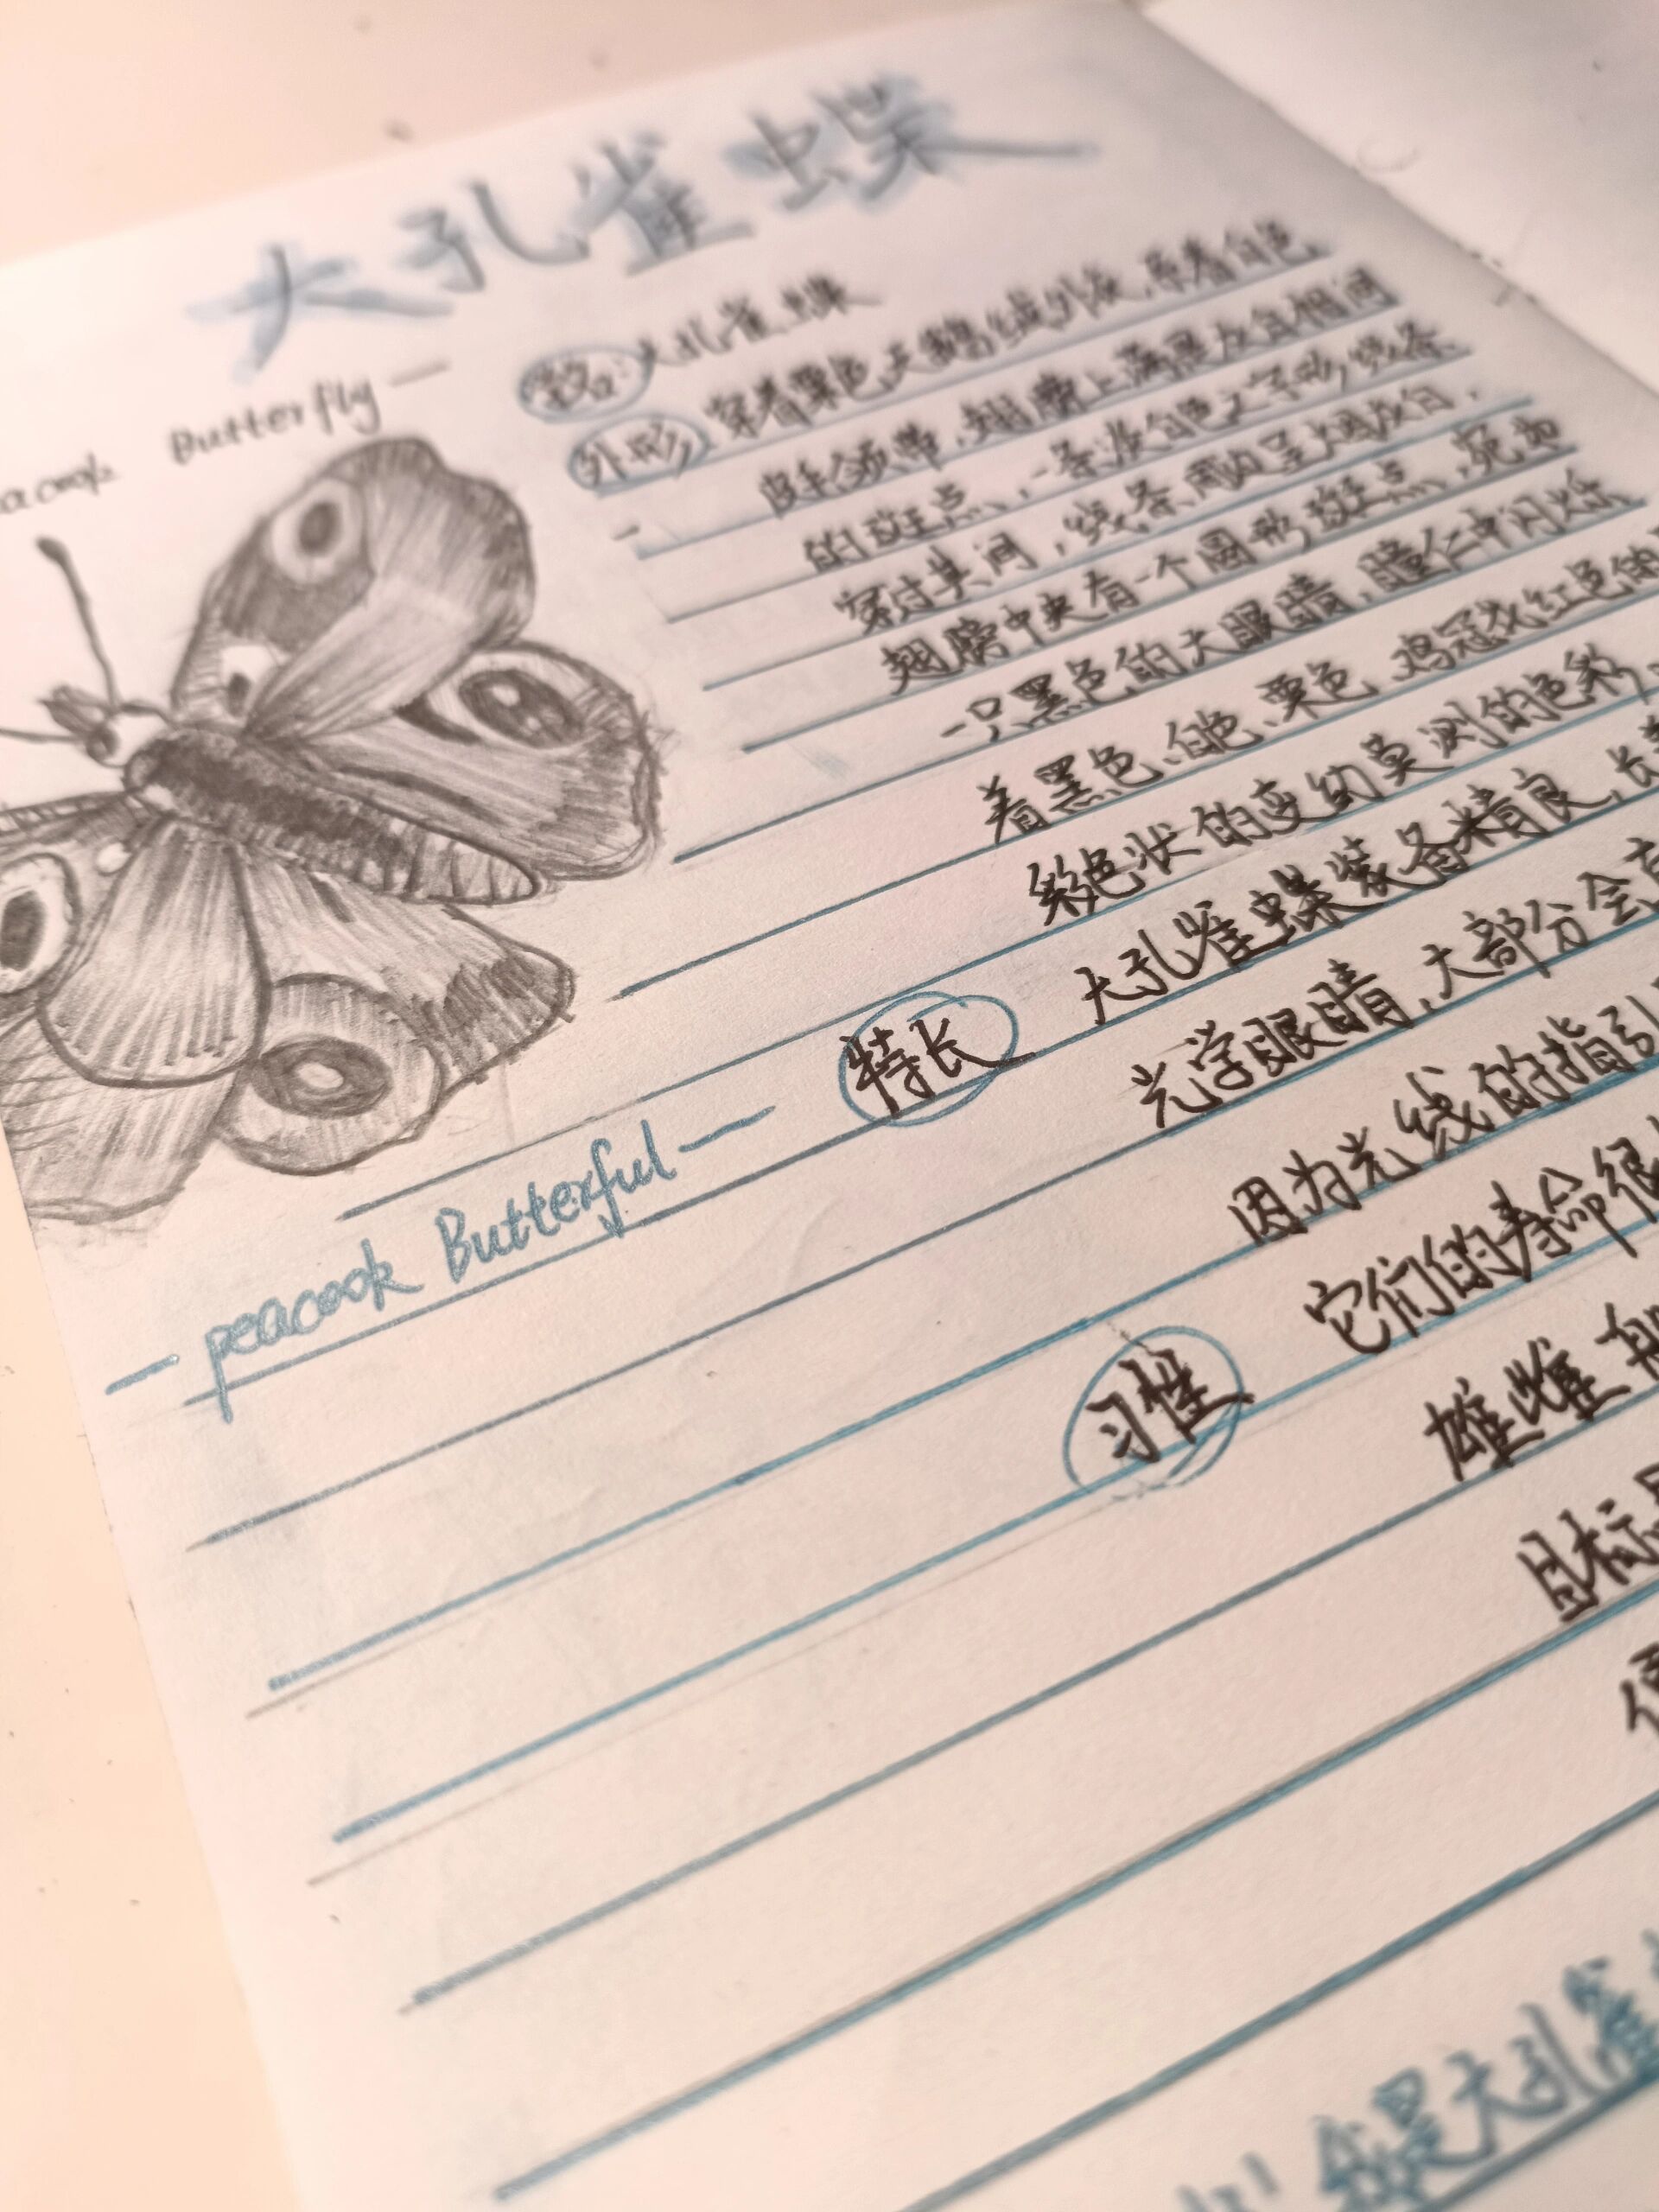 大孔雀蝶
Butterfly —
大孔雀蝶
外形 穿着栗色天鹅绒外衣,系着白色
皮毛领带,翅膀上满是灰白相间
的斑点,一条淡白色之字形线条
穿过其间,线条周边呈烟灰白,
翅膀中央有一个圆形斑点,宛如
一只黑色的大眼睛,瞳仁中闪烁
着黑色、白色、栗色、鸡冠花红色的
彩色状的变幻莫测的色彩
特长 大孔雀蝶装备精良,长着
光学眼睛,大部分会
因为光线的指引
— peacook Butterful —
习性 它们的寿命很
雄雌
目标
我是大孔雀